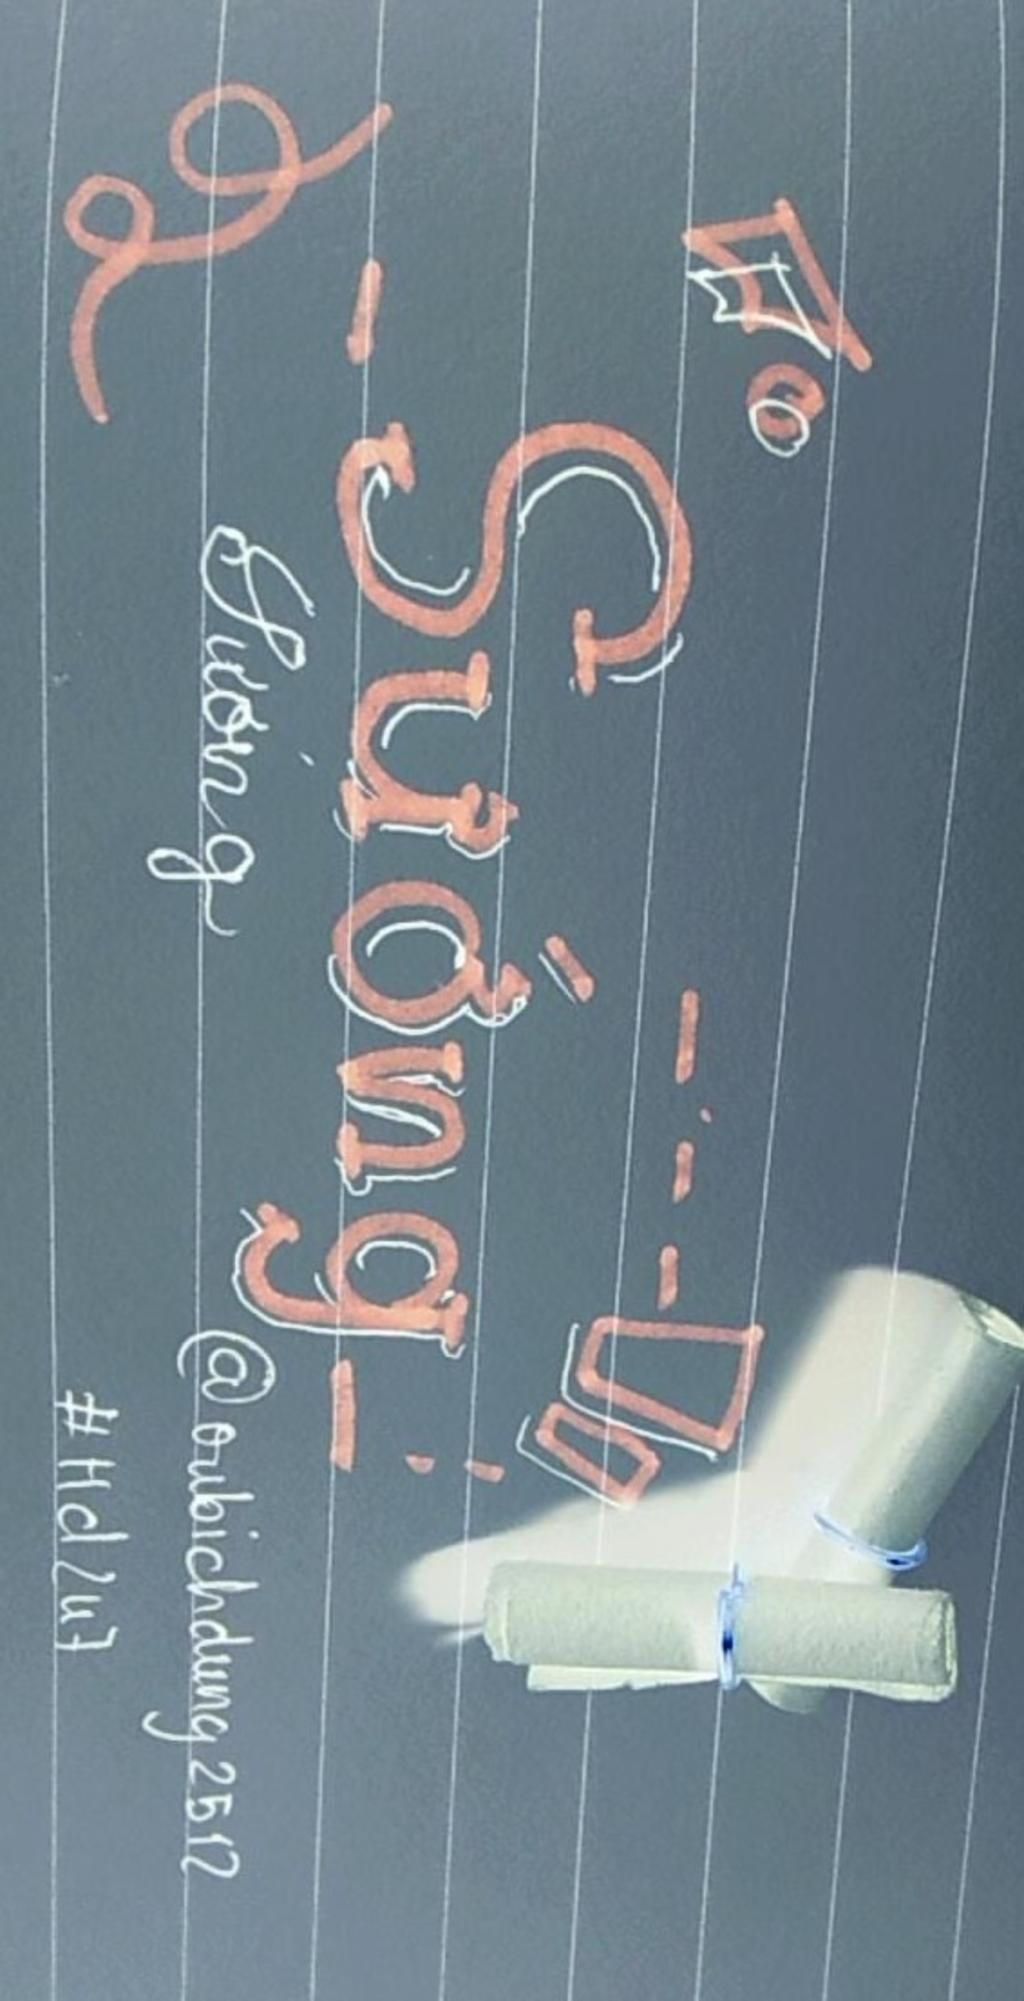 Sướng
Sướng
@orubichdung2512
#Hd2u7